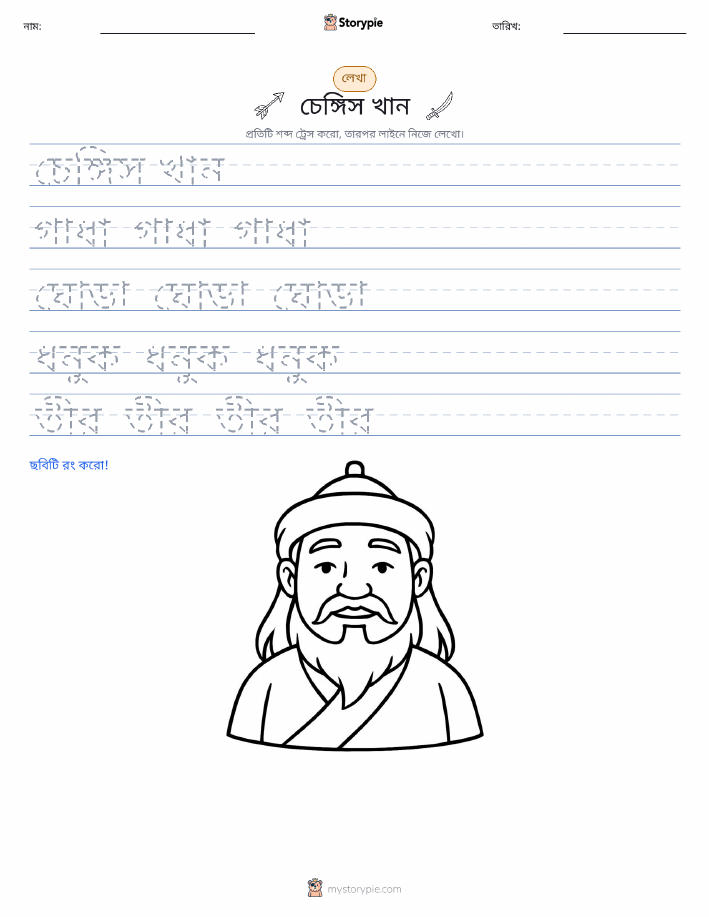 নাম:
Storypie
তারিখ:
লেখা
চেঙ্গিস খান
প্রতিটি শব্দ ট্রেস করো, তারপর লাইনে নিজে লেখো।
চেঙ্গিস খান
গাধা গাধা গাধা
ঘোড়া ঘোড়া ঘোড়া
ধনুক ধনুক ধনুক
তীর তীর তীর তীর
ছবিটি রং করো!
mystorypie.com